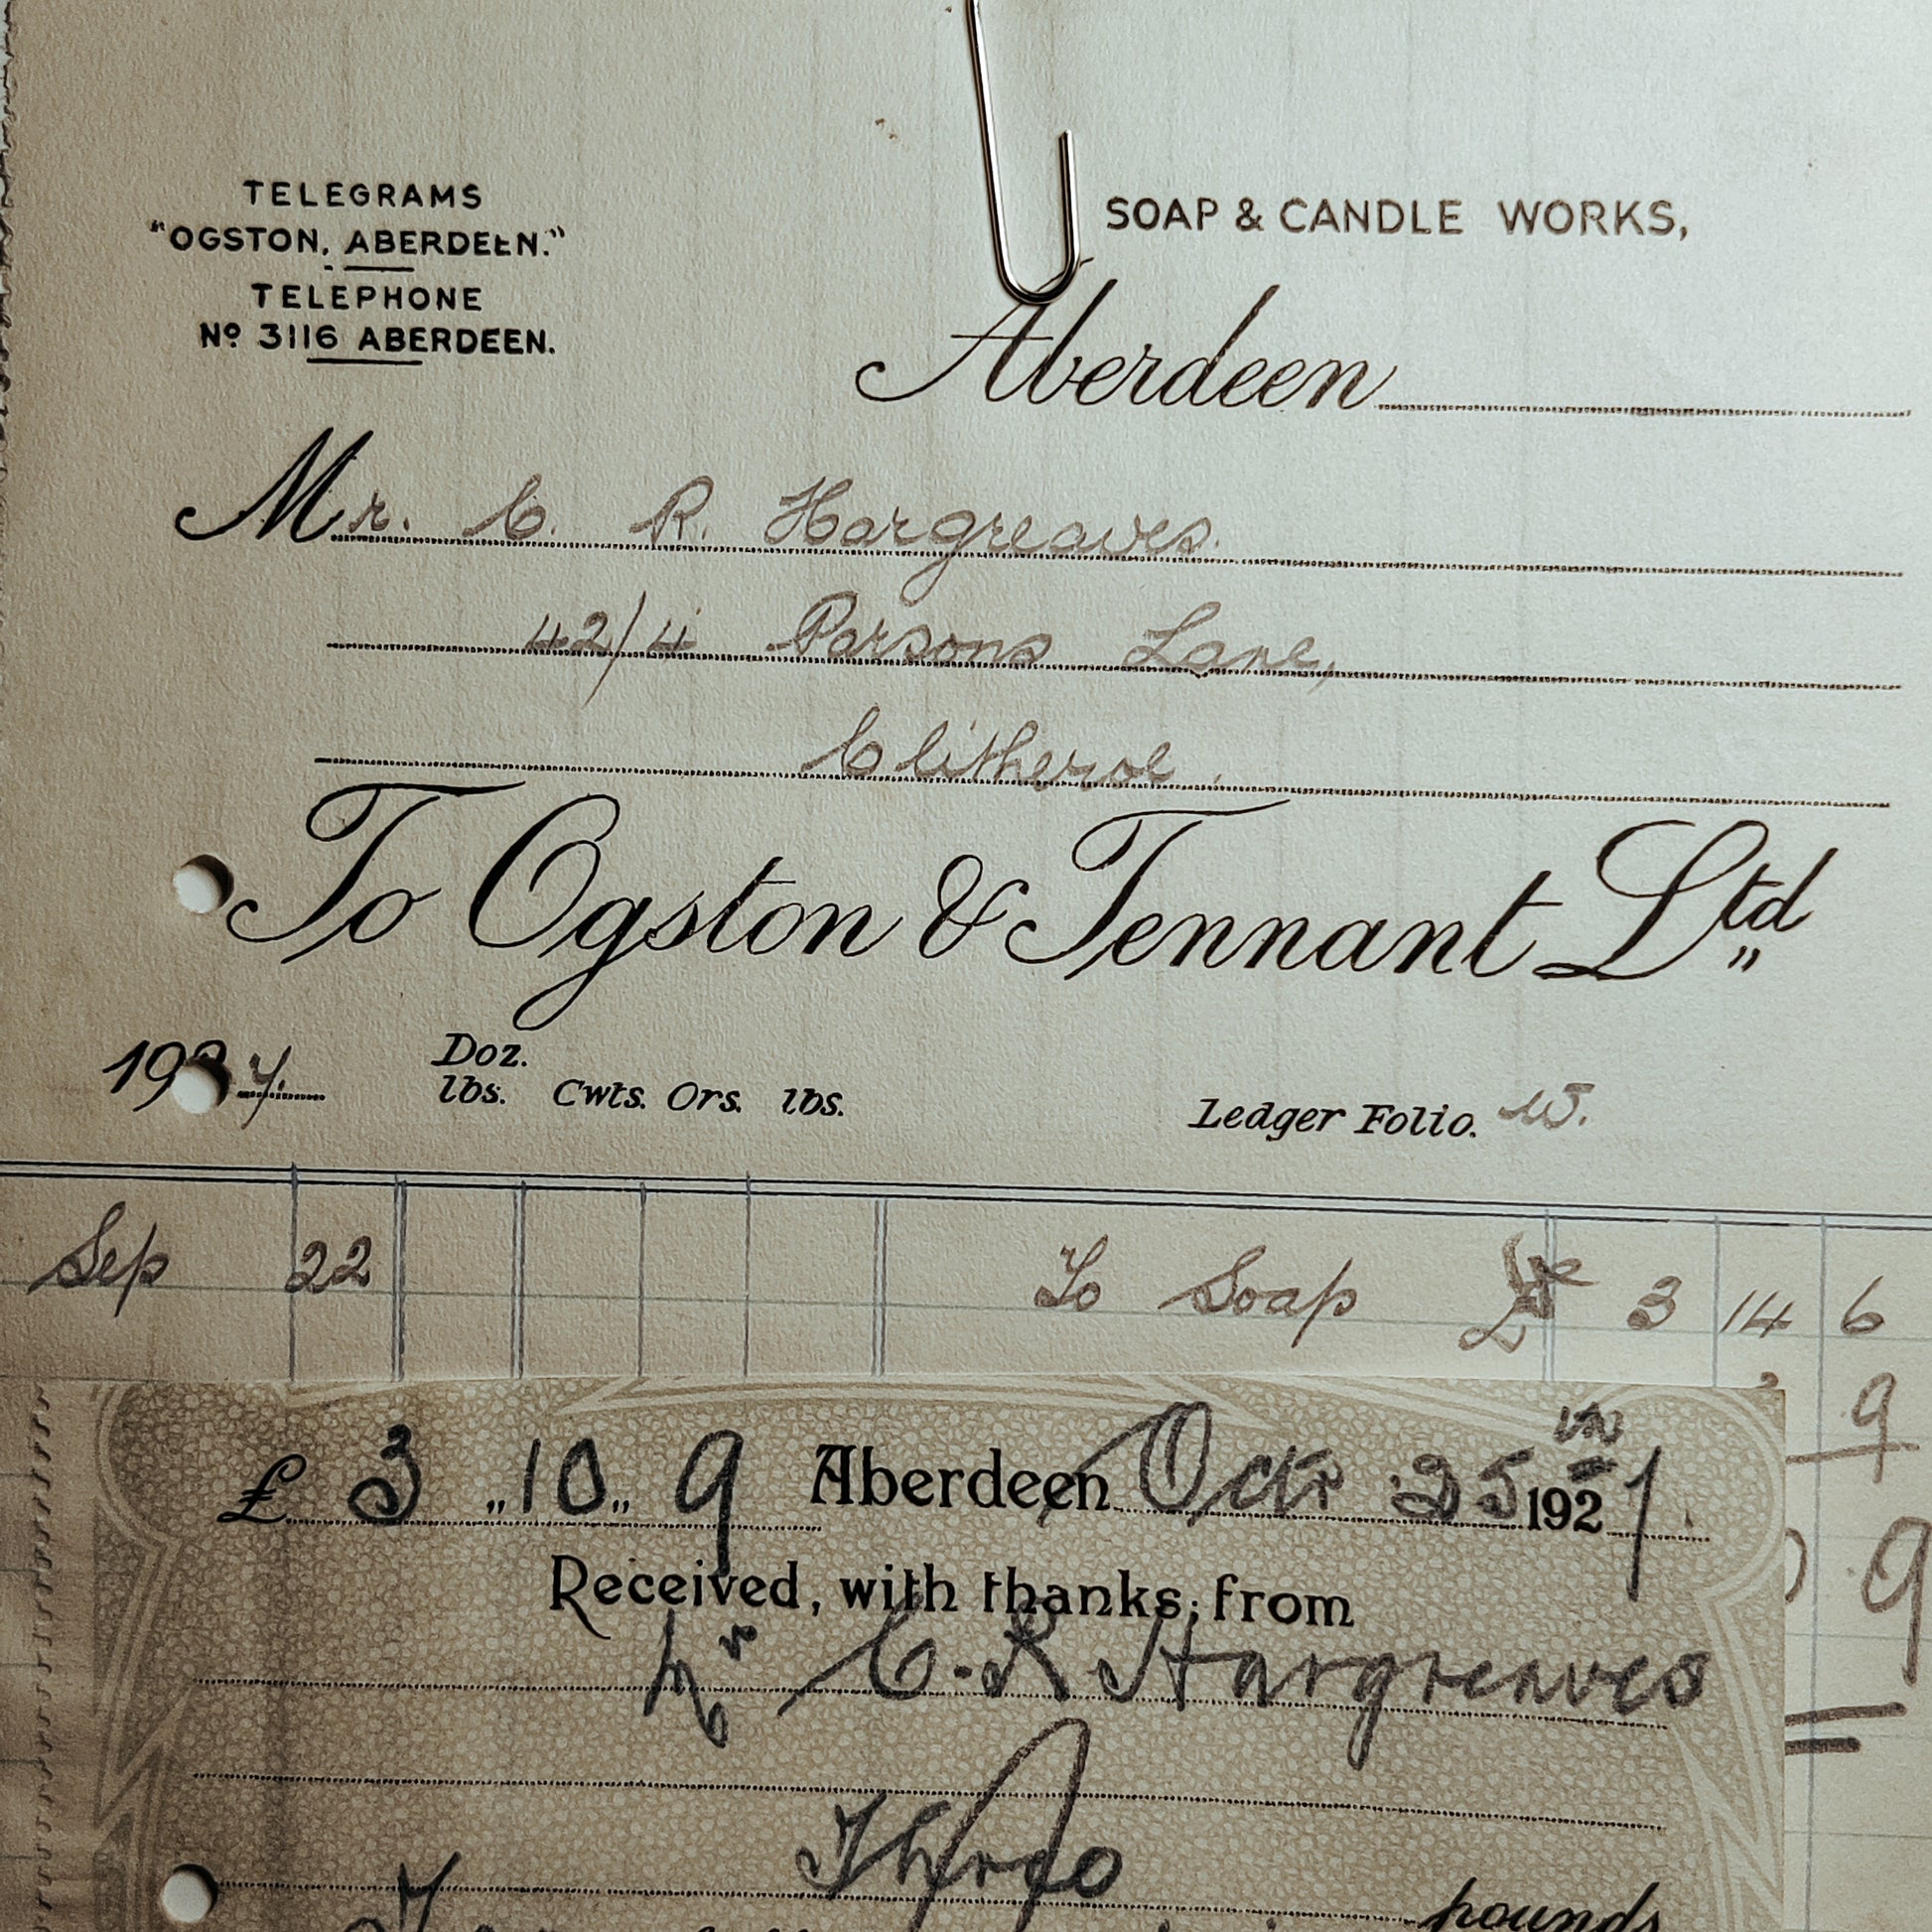 TELEGRAMS
"OGSTON, ABERDEEN."
TELEPHONE
Nº 3116 ABERDEEN.
SOAP & CANDLE WORKS,
Aberdeen
Mr. C. R. Hargreaves.
42/4 Parsons Lane,
Clitheroe.
To Ogston & Tennant Ltd
192
Doz.
lbs. Cwts. Qrs. lbs.
Ledger Folio.
Sep 22 To Soap £ 3 14 6
9
£ 3 „ 10 „ 9 Aberdeen Octr 25th 1921.
9
Received, with thanks, from
Mr C. R Hargreaves
Three
pounds